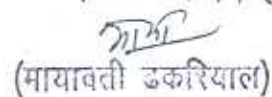 (मायावती ढकरियाल)